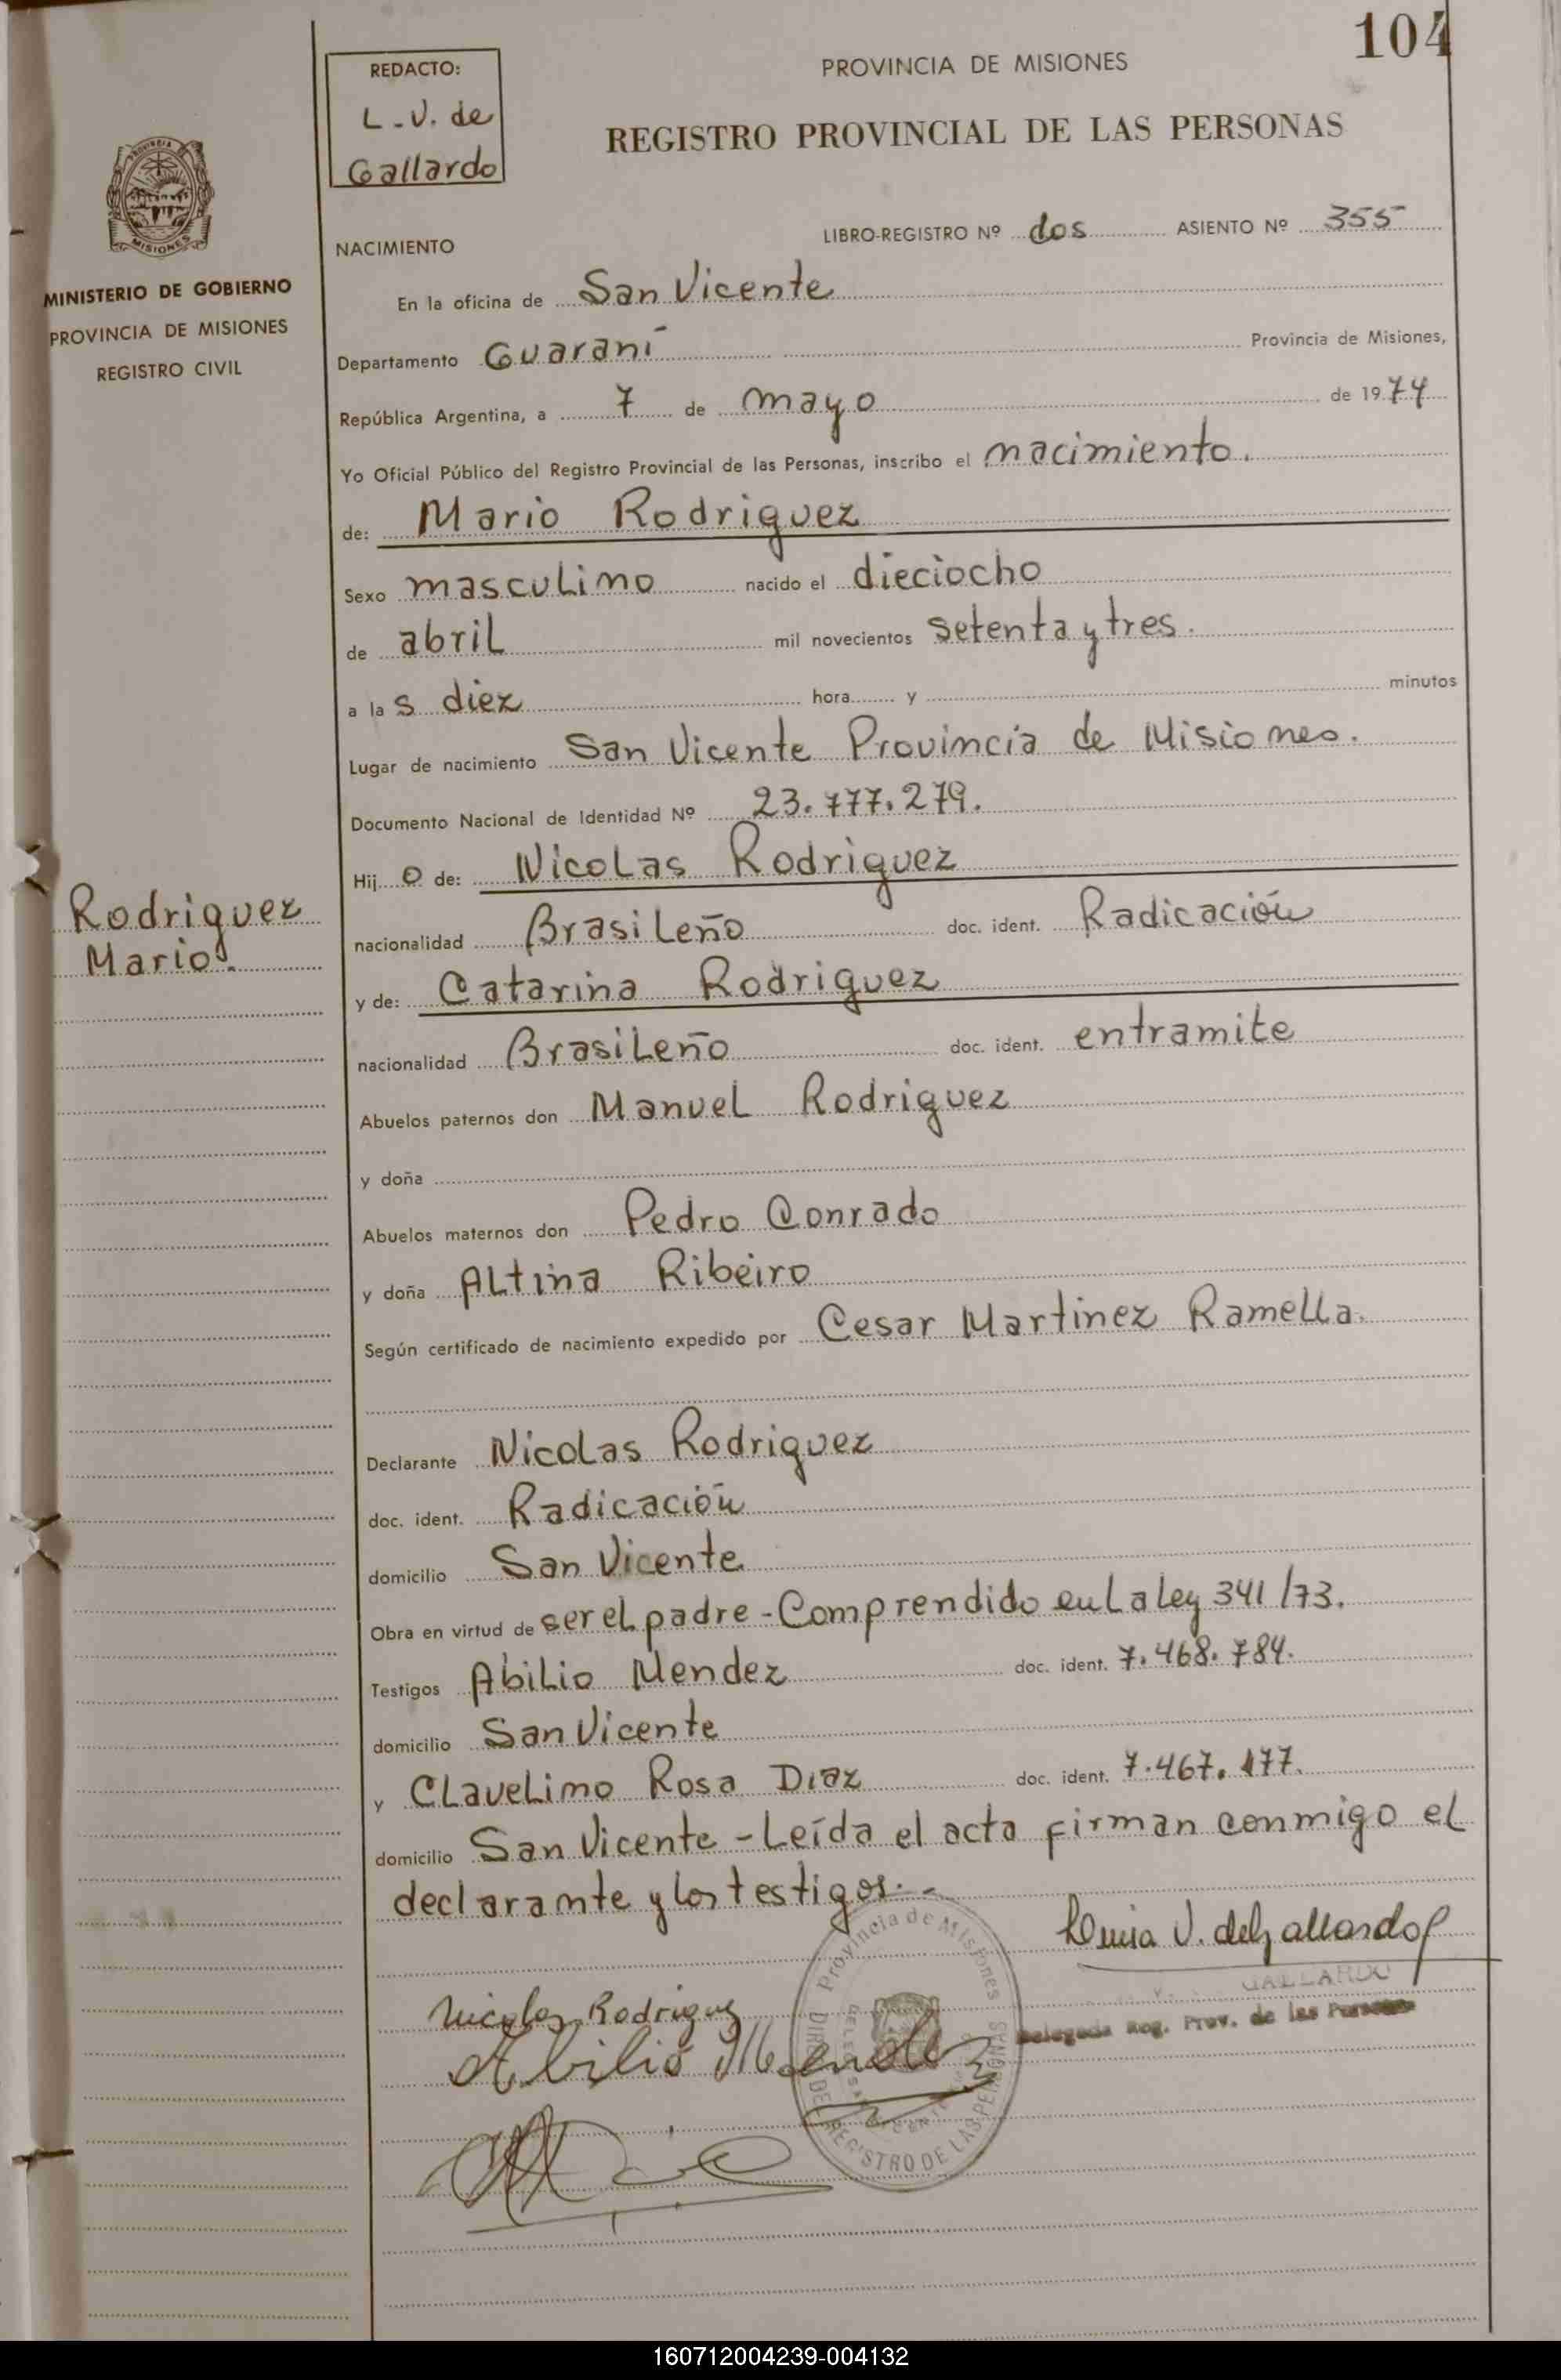 104
REDACTO:
L.V. de
Gallardo
PROVINCIA DE MISIONES
REGISTRO PROVINCIAL DE LAS PERSONAS
MISIONES
MINISTERIO DE GOBIERNO
PROVINCIA DE MISIONES
REGISTRO CIVIL
NACIMIENTO
LIBRO-REGISTRO Nº dos ASIENTO Nº 355
En la oficina de San Vicente
Departamento Guaraní Provincia de Misiones,
República Argentina, a 7 de mayo de 1974
Yo Oficial Público del Registro Provincial de las Personas, inscribo el nacimiento.
de: Mario Rodriguez
Sexo masculino nacido el dieciocho
de abril mil novecientos setenta y tres.
a la s diez hora y minutos
Lugar de nacimiento San Vicente Provincia de Misiones.
Documento Nacional de Identidad Nº 23.777.279.
Hij o de: Nicolas Rodriguez
Rodriguez
Mario.
nacionalidad Brasileño doc. ident. Radicación
y de: Catarina Rodriguez
nacionalidad Brasileño doc. ident. entramite
Abuelos paternos don Manuel Rodriguez
y doña
Abuelos maternos don Pedro Conrado
y doña Altina Ribeiro
Según certificado de nacimiento expedido por Cesar Martinez Ramella.
Declarante Nicolas Rodriguez
doc. ident. Radicación
domicilio San Vicente
Obra en virtud de ser el padre - Comprendido en La Ley 341/73.
Testigos Abilio Mendez doc. ident. 7.468.784.
domicilio San Vicente
y Clavelino Rosa Diaz doc. ident. 7.467.177.
domicilio San Vicente - Leída el acta firman conmigo el
declarante y los testigos.-
Luisa V. de Gallardo
GALLARDO
Delegada Reg. Prov. de las Personas
Provincia de Misiones
DIR. DEL REGISTRO DE LAS PERSONAS
Nicolas Rodriguez
Abilio Mendez
160712004239-004132